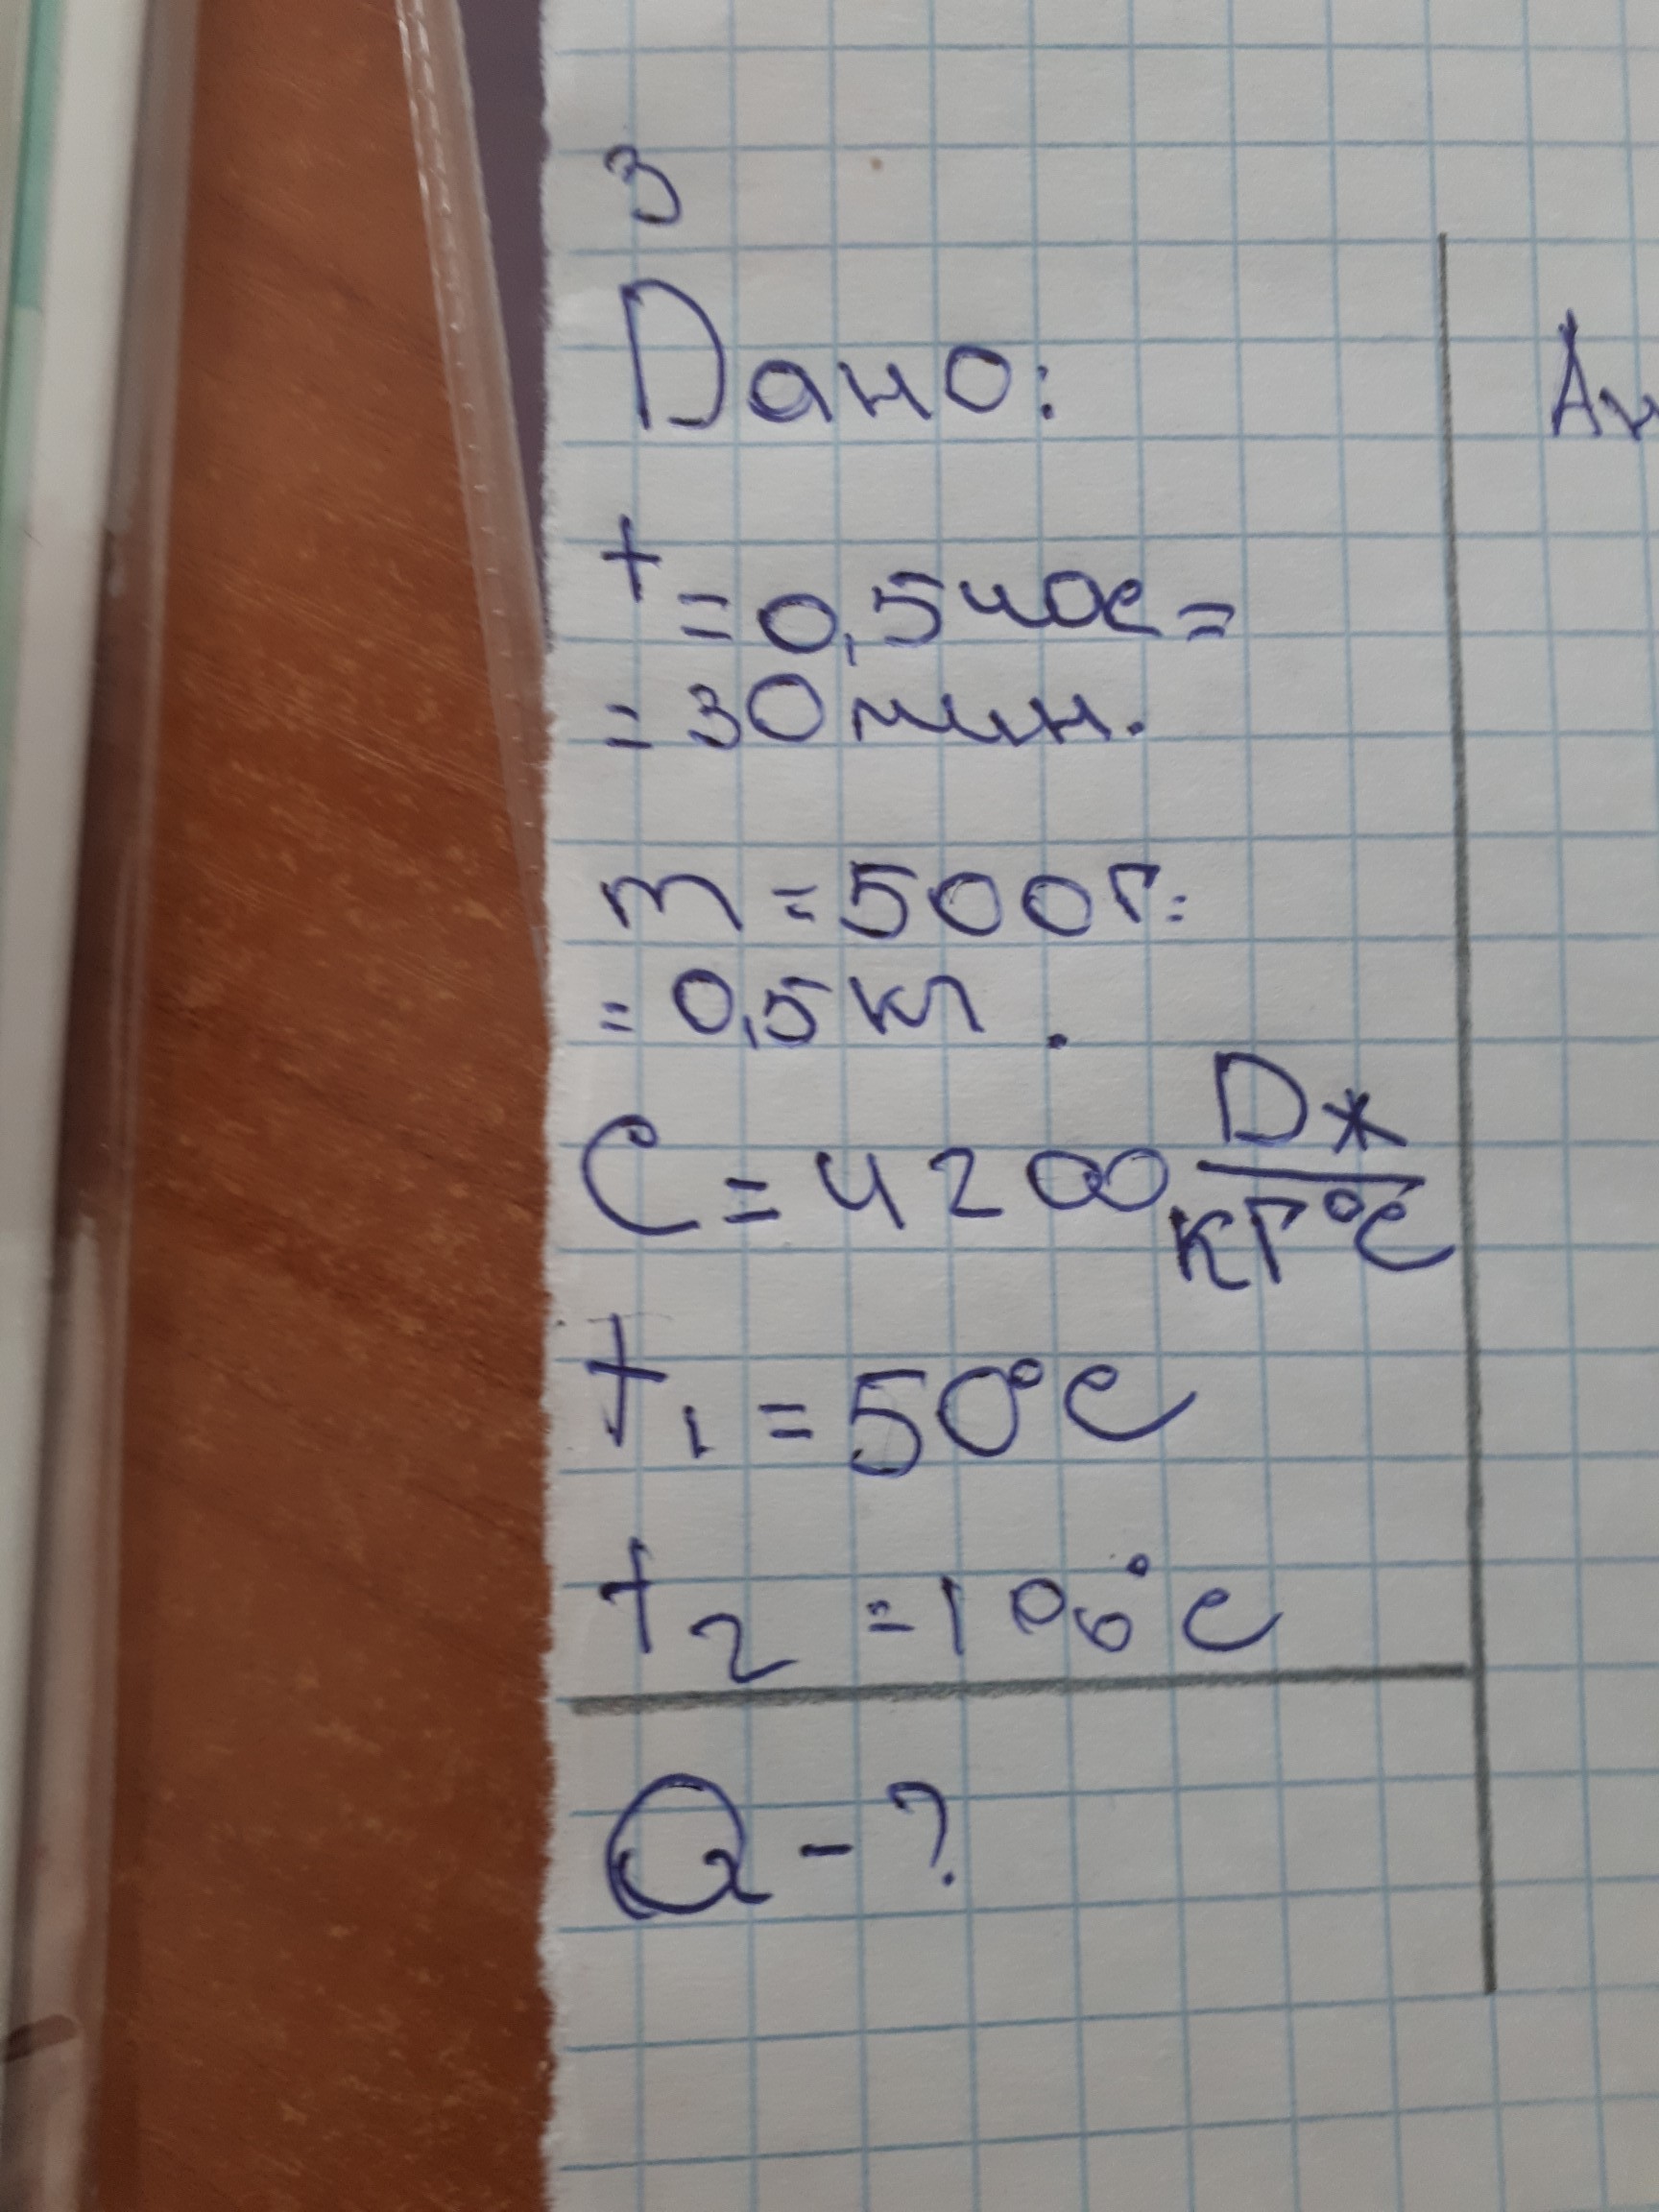 3
Дано:
t = 0,5 час =
= 30 мин.
m = 500г =
= 0,5 кг.
C = 4200 Дж/кг°C
t₁ = 50°C
t₂ = 100°C
Q - ?